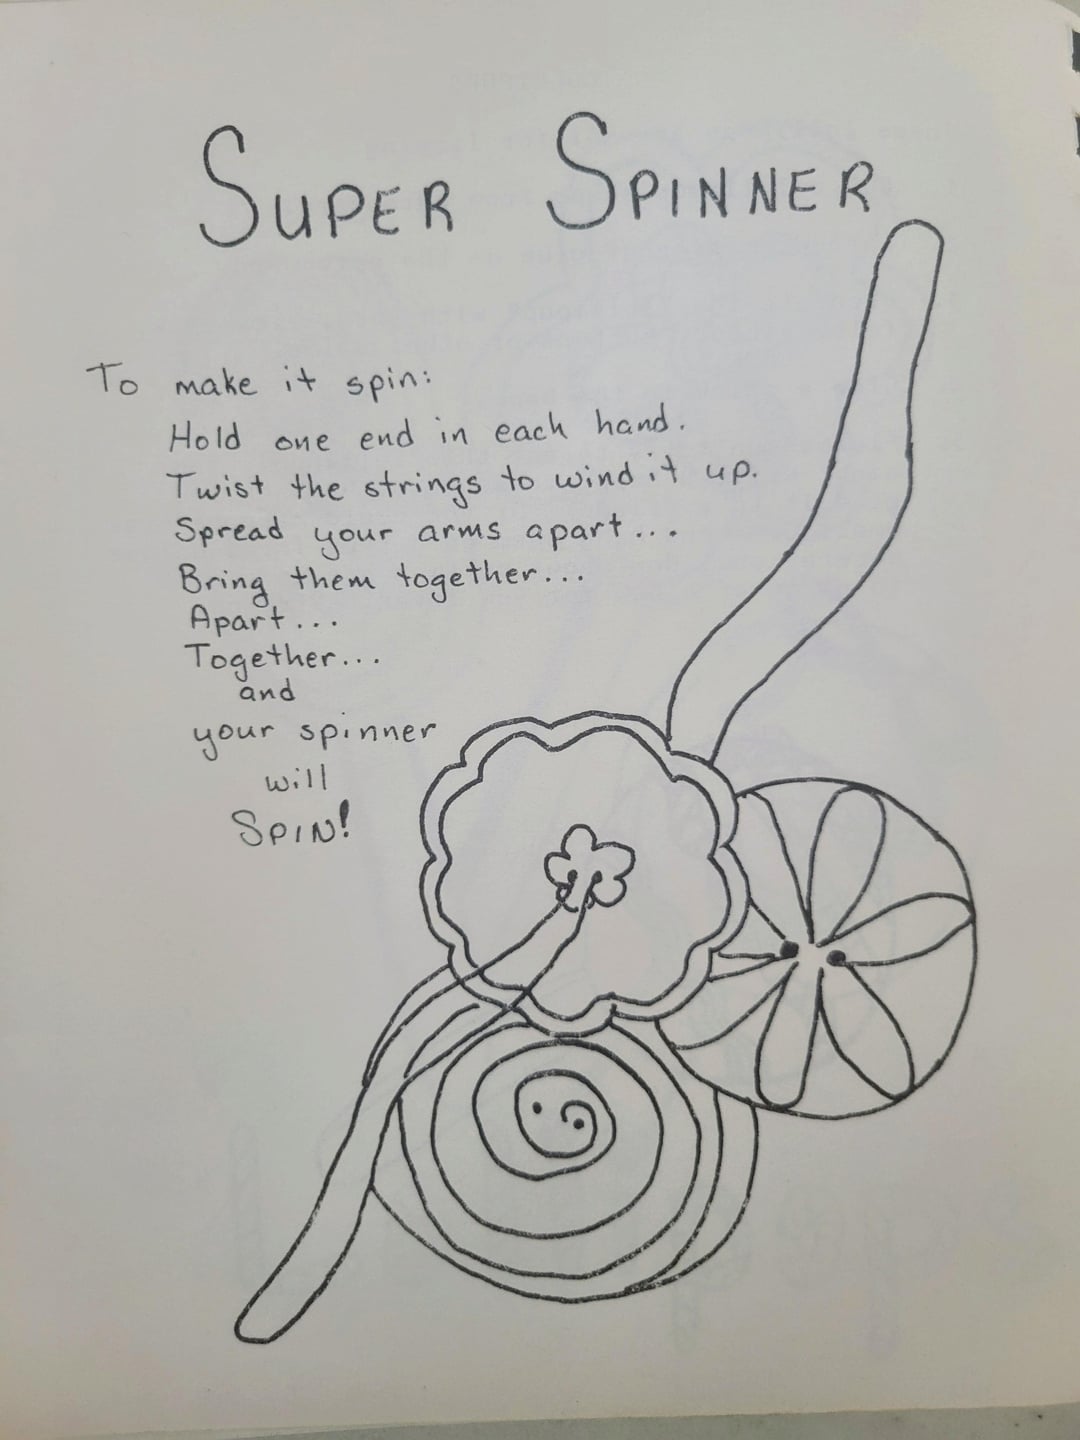 SUPER SPINNER
To make it spin:
Hold one end in each hand.
Twist the strings to wind it up.
Spread your arms apart...
Bring them together...
Apart...
Together...
and
your spinner
will
SPIN!